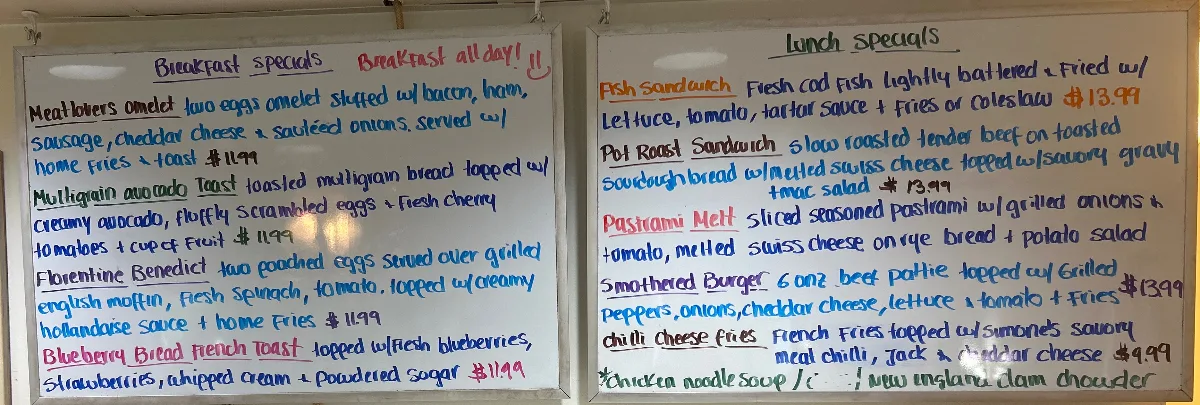 Breakfast specials Breakfast all day!
Meatlovers omelet two eggs omelet stuffed w/ bacon, ham,
sausage, cheddar cheese & sautéed onions. served w/
home fries & toast $11.99
Multigrain avocado Toast toasted multigrain bread topped w/
creamy avocado, fluffly scrambled eggs & fresh cherry
tomatoes + cup of fruit $11.99
Florentine Benedict two poached eggs served over grilled
english moffin, fresh spinach, tomato. topped w/ creamy
hollandaise sauce + home fries $11.99
Blueberry Bread French Toast topped w/ fresh blueberries,
strawberries, whipped cream & powdered sogar $11.99
Lunch specials
Fish Sandwich Fresh cod fish lightly battered & fried w/
lettuce, tomato, tartar sauce + fries or coleslaw $13.99
Pot Roast Sandwich slow roasted tender beef on toasted
sourdough bread w/ melted swiss cheese topped w/ savory gravy
+ mac salad $13.99
Pastrami Melt sliced seasoned pastrami w/ grilled onions &
tomato, melted swiss cheese on rye bread + potato salad
Smothered Burger 6 onz. beef pattie topped w/ Grilled $13.99
peppers, onions, cheddar cheese, lettuce & tomato + fries
chilli cheese fries French Fries topped w/ simone's savory
meat chilli, Jack & cheddar cheese $9.99
*chicken noodle soup / / New england clam chowder